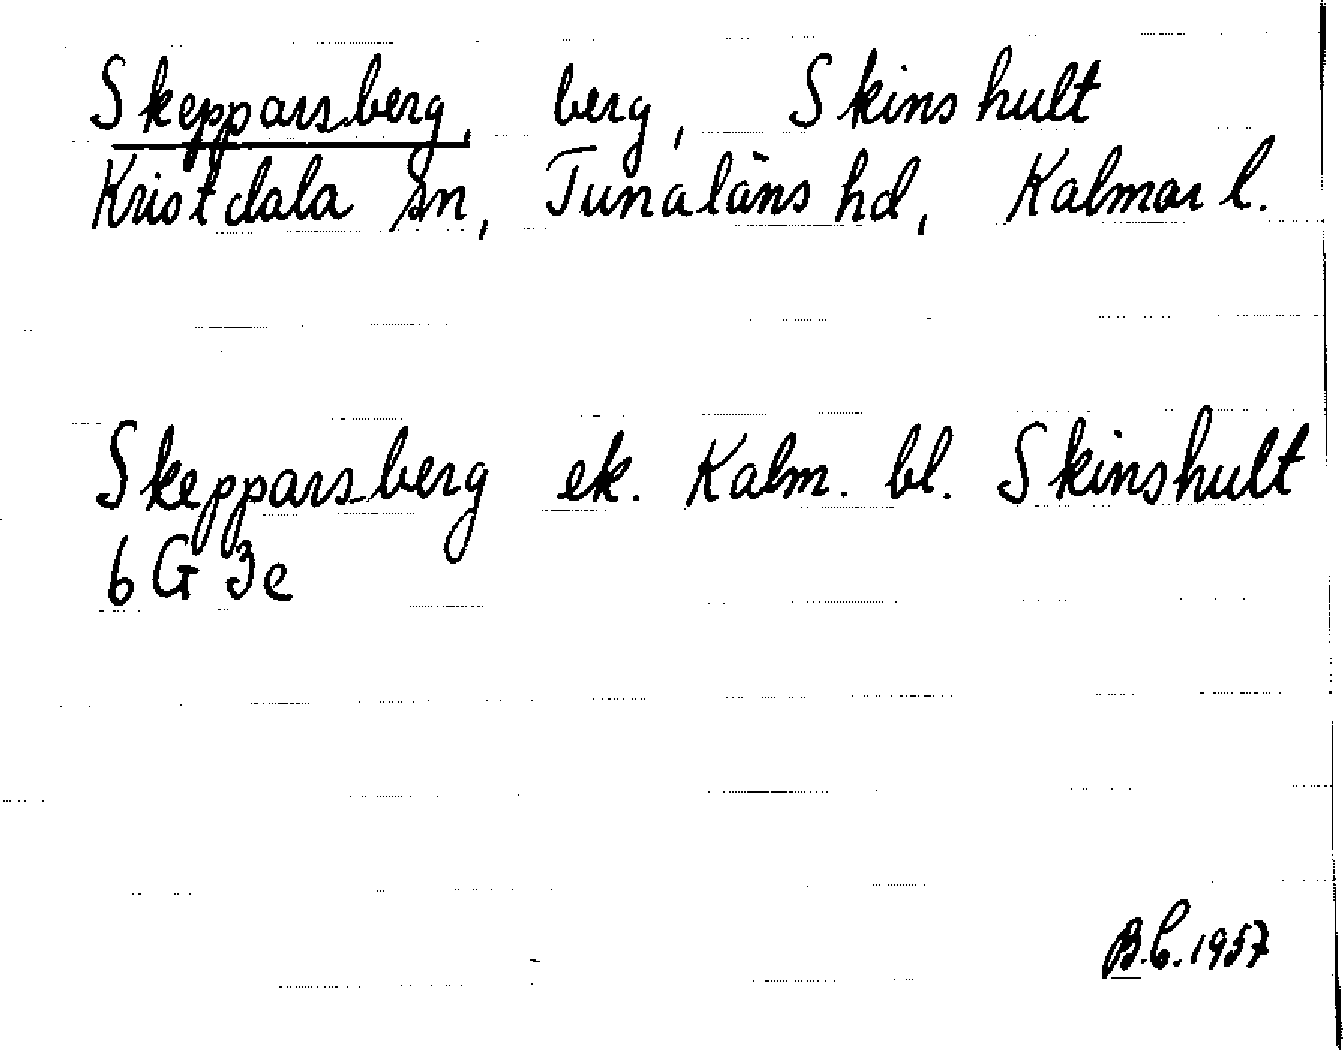 Skepparsberg, berg, Skinshult
Kristdala sn, Tunaläns hd, Kalmar l.
Skepparsberg ek. Kalm. bl. Skinshult
6 G 3e
B.C. 1957